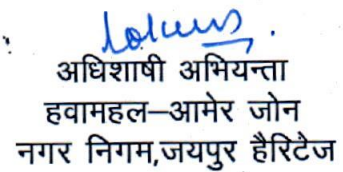 अधिशाषी अभियन्ता
हवामहल–आमेर जोन
नगर निगम,जयपुर हैरिटैज